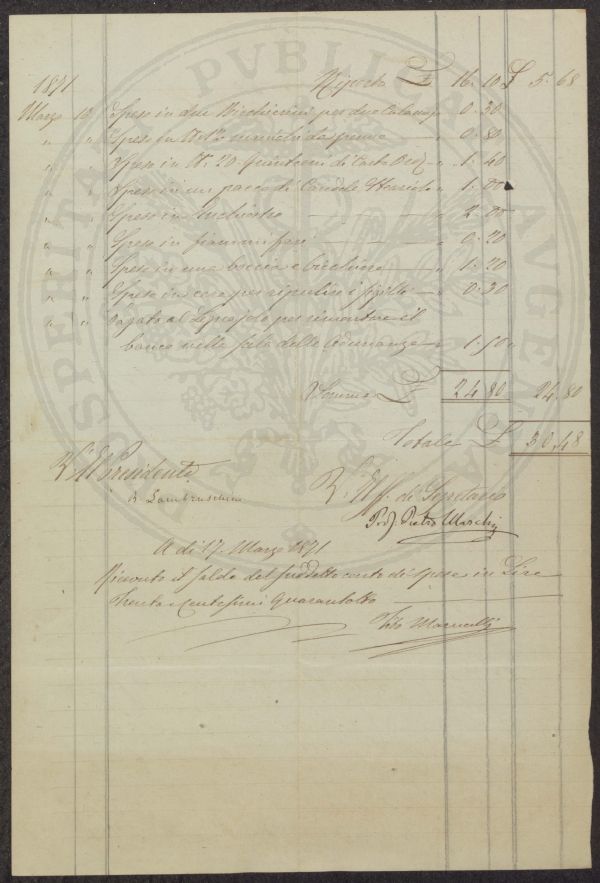 1871 Riporto £ 16.10 £ 5.68
Marzo 12 Spese in due Bicchierini per due Calamaj " 0.30
" " Spese in manichi da penne — " 0.80
" " Spese in N. 20 Quinterni di Carta — " 1.40
" " Spese in un pacco di Candele — " 1.00
" " Spese in Inchiostro — " 2.00
" " Spese in fiammiferi — " 0.20
" " Spese in una boccia e bicchiere — " 1.20
" " Spese in cera per ripulire i sigilli — " 0.30
" " Pagato al Legnajolo per rimontare il
banco nella Sala delle Adunanze — " 1.50 "
Somma £ 24.80 24.80
Totale £ 30.48
Il Presidente
R. Lambruschini
Il ff. di Segretario
Prof. Pietro Marchi
A dì 17 Marzo 1871
Ricevuto il saldo del suddetto conto di spese in Lire
Trenta e Centesimi Quarantotto —
Tito Marucelli
PROSPERITATI PVBLICAE AVGENDAE